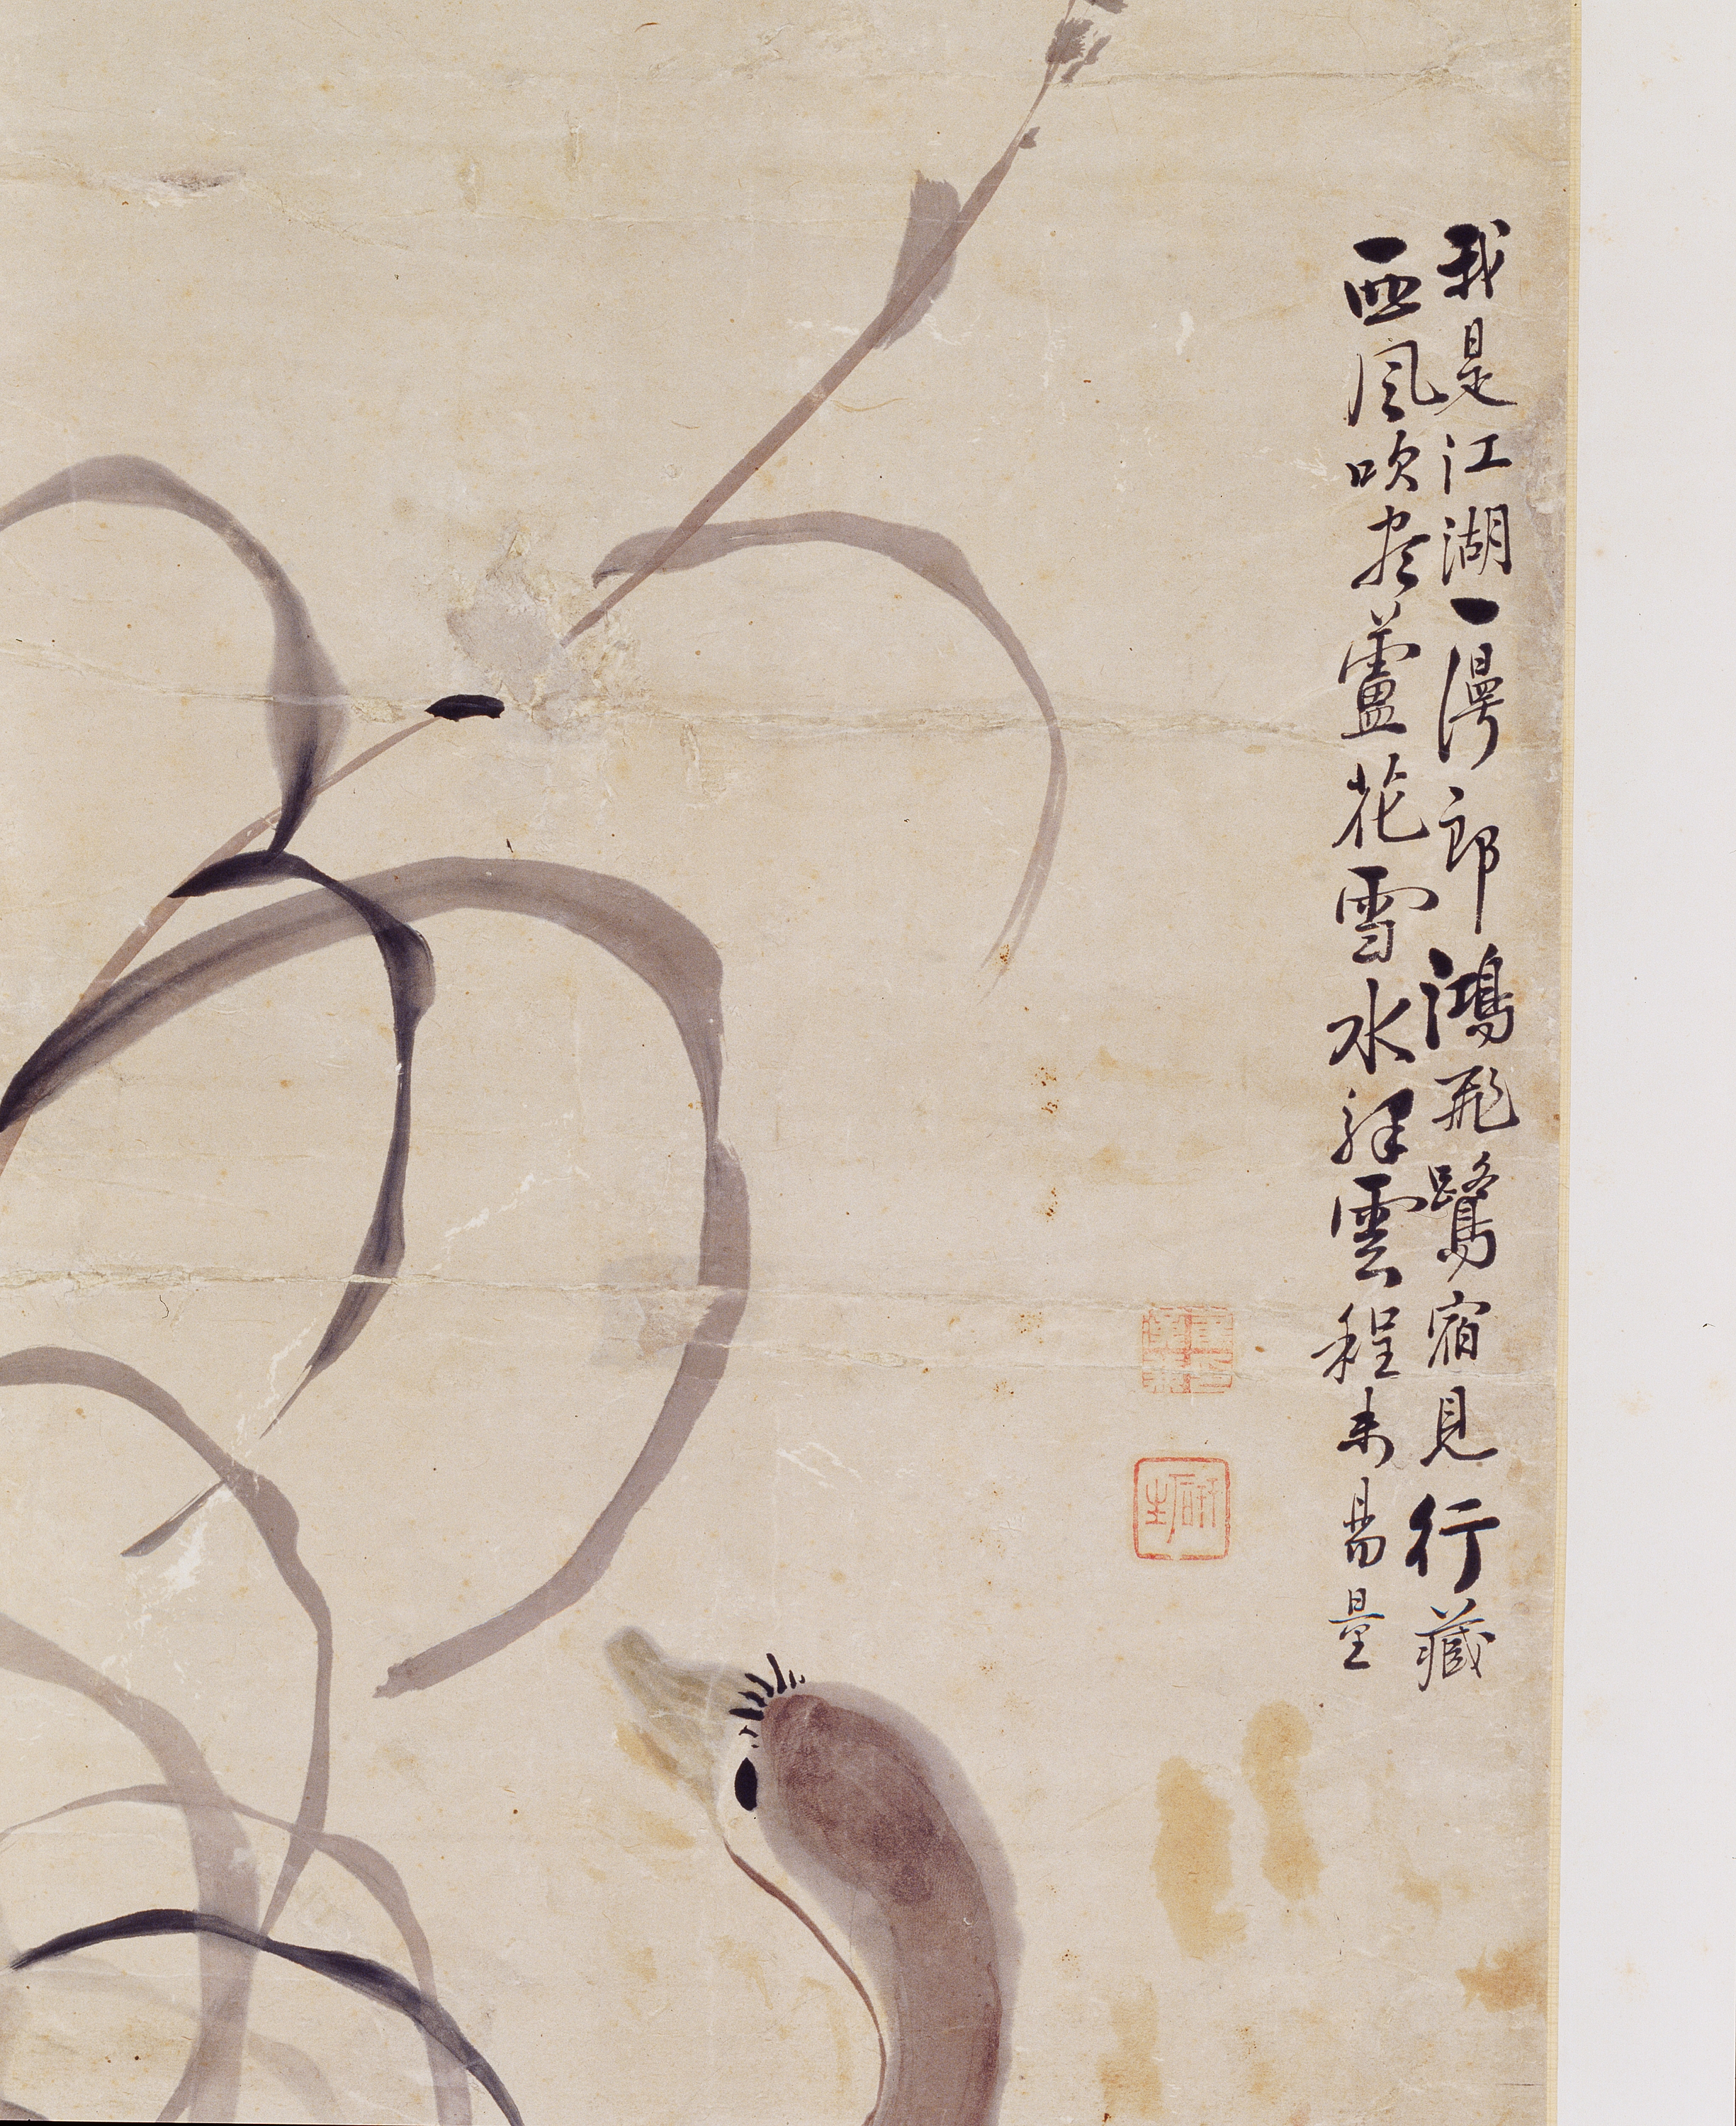 我是江湖一漫郎鴻飛鷺宿見行藏
西風吹盡蘆花雪水澤雲程未易量